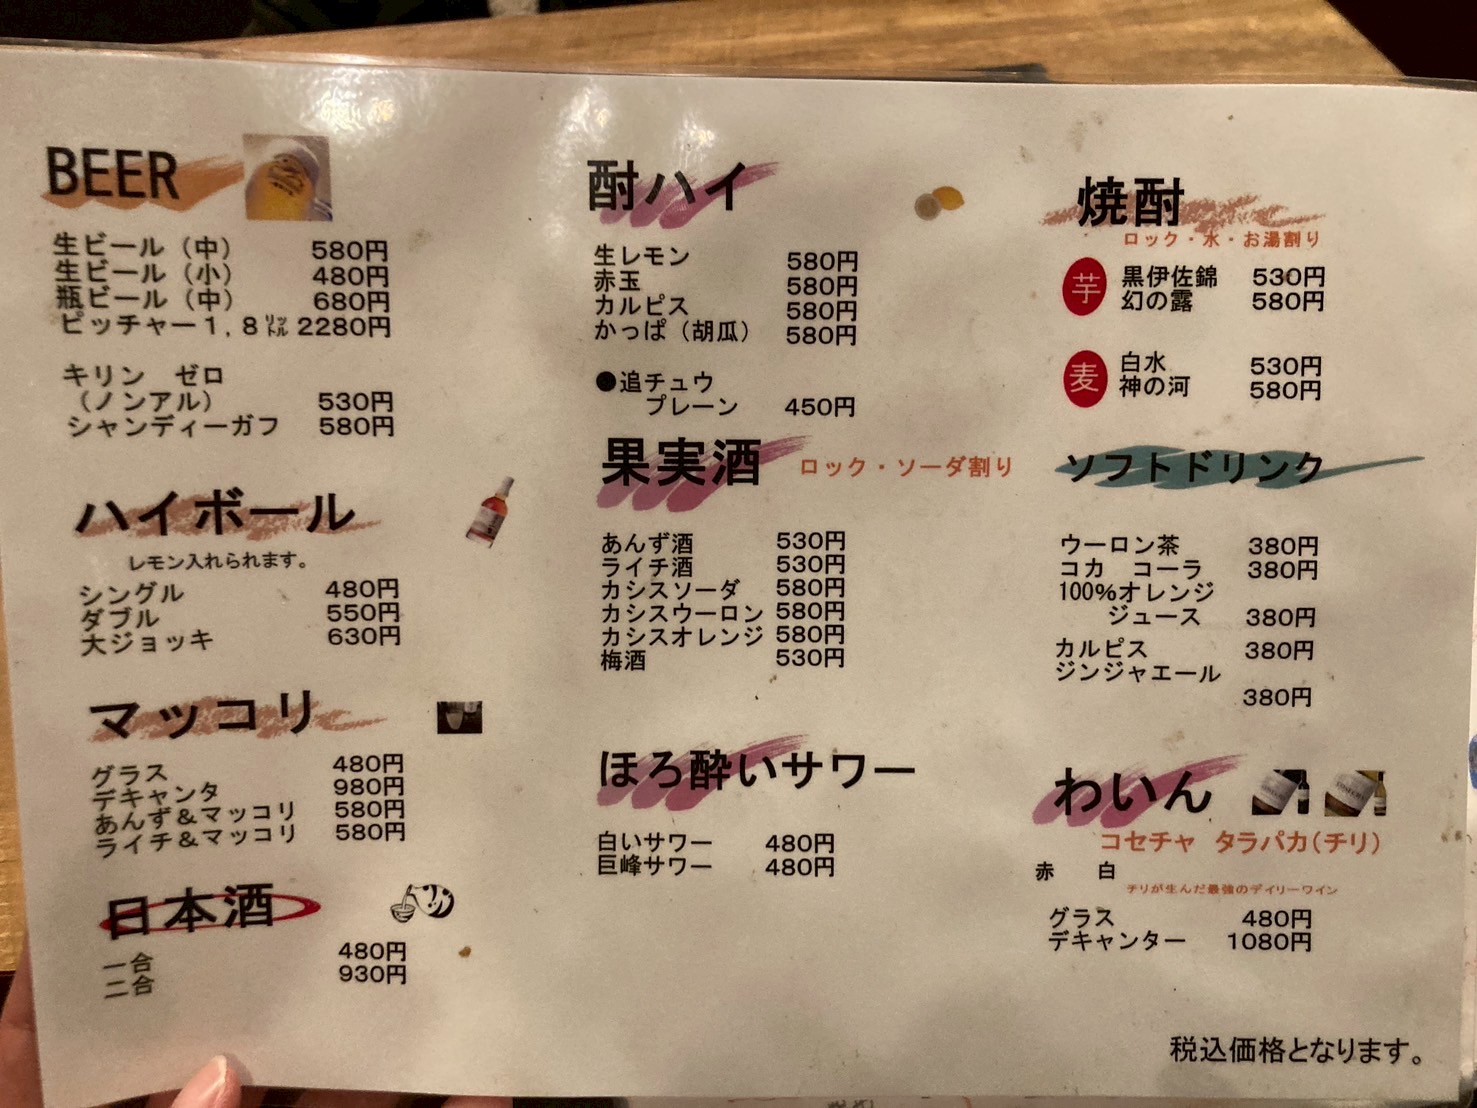 BEER
生ビール（中） 580円
生ビール（小） 480円
瓶ビール（中） 680円
ピッチャー１,８㍑ 2280円
キリン　ゼロ
（ノンアル） 530円
シャンディーガフ 580円
ハイボール
レモン入れられます。
シングル 480円
ダブル 550円
大ジョッキ 630円
マッコリ
グラス 480円
デキャンタ 980円
あんず＆マッコリ 580円
ライチ＆マッコリ 580円
日本酒
一合 480円
二合 930円
酎ハイ
生レモン 580円
赤玉 580円
カルピス 580円
かっぱ（胡瓜） 580円
●追チュウ
プレーン 450円
果実酒 ロック・ソーダ割り
あんず酒 530円
ライチ酒 530円
カシスソーダ 580円
カシスウーロン 580円
カシスオレンジ 580円
梅酒 530円
ほろ酔いサワー
白いサワー 480円
巨峰サワー 480円
焼酎
ロック・水・お湯割り
芋 黒伊佐錦 530円
幻の露 580円
麦 白水 530円
神の河 580円
ソフトドリンク
ウーロン茶 380円
コカ　コーラ 380円
100%オレンジ
ジュース 380円
カルピス 380円
ジンジャエール
380円
わいん
コセチャ　タラパカ(チリ)
赤　白
チリが生んだ最強のデイリーワイン
グラス 480円
デキャンター 1080円
税込価格となります。